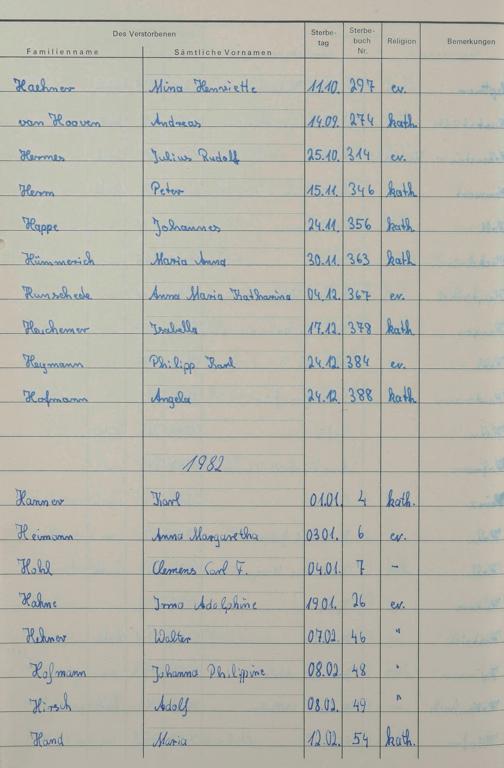 Des Verstorbenen Sterbe- Sterbe- Religion Bemerkungen
Familienname Sämtliche Vornamen tag buch Nr.
Haehner Mina Henriette 11.10. 297 ev.
van Hooven Andreas 14.09. 274 kath.
Hermes Julius Rudolf 25.10. 314 ev.
Herm Peter 15.11. 346 kath
Happe Johannes 24.11. 356 kath
Hümmerich Maria Anna 30.11. 363 kath
Hunschede Anna Maria Katharina 04.12. 367 ev.
Heichemer Isabella 17.12. 378 kath
Heymann Philipp Karl 24.12. 384 ev.
Hofmann Angela 24.12. 388 kath
1982
Hanner Karl 01.01. 4 kath.
Heimann Anna Margaretha 03 01. 6 ev.
Hohl Clemens Carl F. 04.01. 7 -
Hahne Irma Adolphine 19 01. 26 ev.
Hehner Walter 07.02. 46 "
Hofmann Johanna Philippine 08.02 48 "
Hirsch Adolf 08.02. 49 "
Hand Maria 12.02. 54 kath.